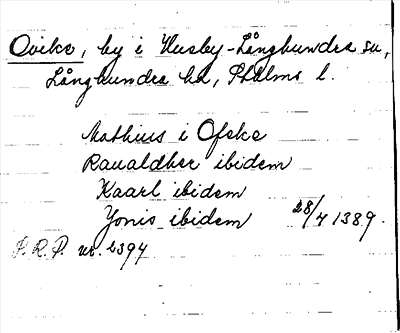 Ovike, by i Husby-Långhundra sn,
Långhundra hd, Sthlms l.
Mathius i Ofske
Raualdher ibidem
Kaarl ibidem
Yonis ibidem 28/4 1389.
S.R.P. nr. 2394